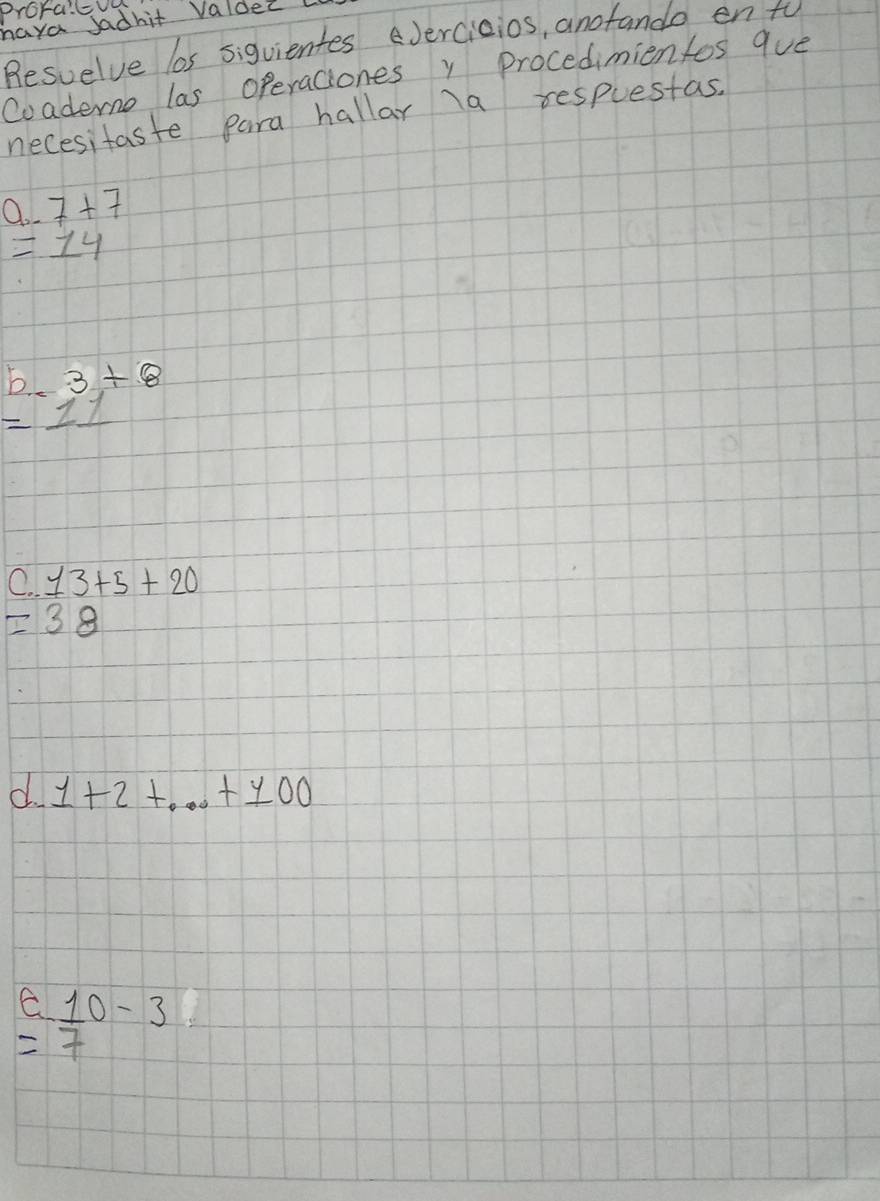 naya Jadhit Valdez
Resuelve los siguientes eJercicios, anotando en tu
Coaderno las operaciones y procedimientos que
necesitaste para hallar la respuestas.
a. 7+7
= 14
b. 3+8
= 11
C. 13+5+20
= 38
d. 1+2+...+100
e. 10-3
= 7